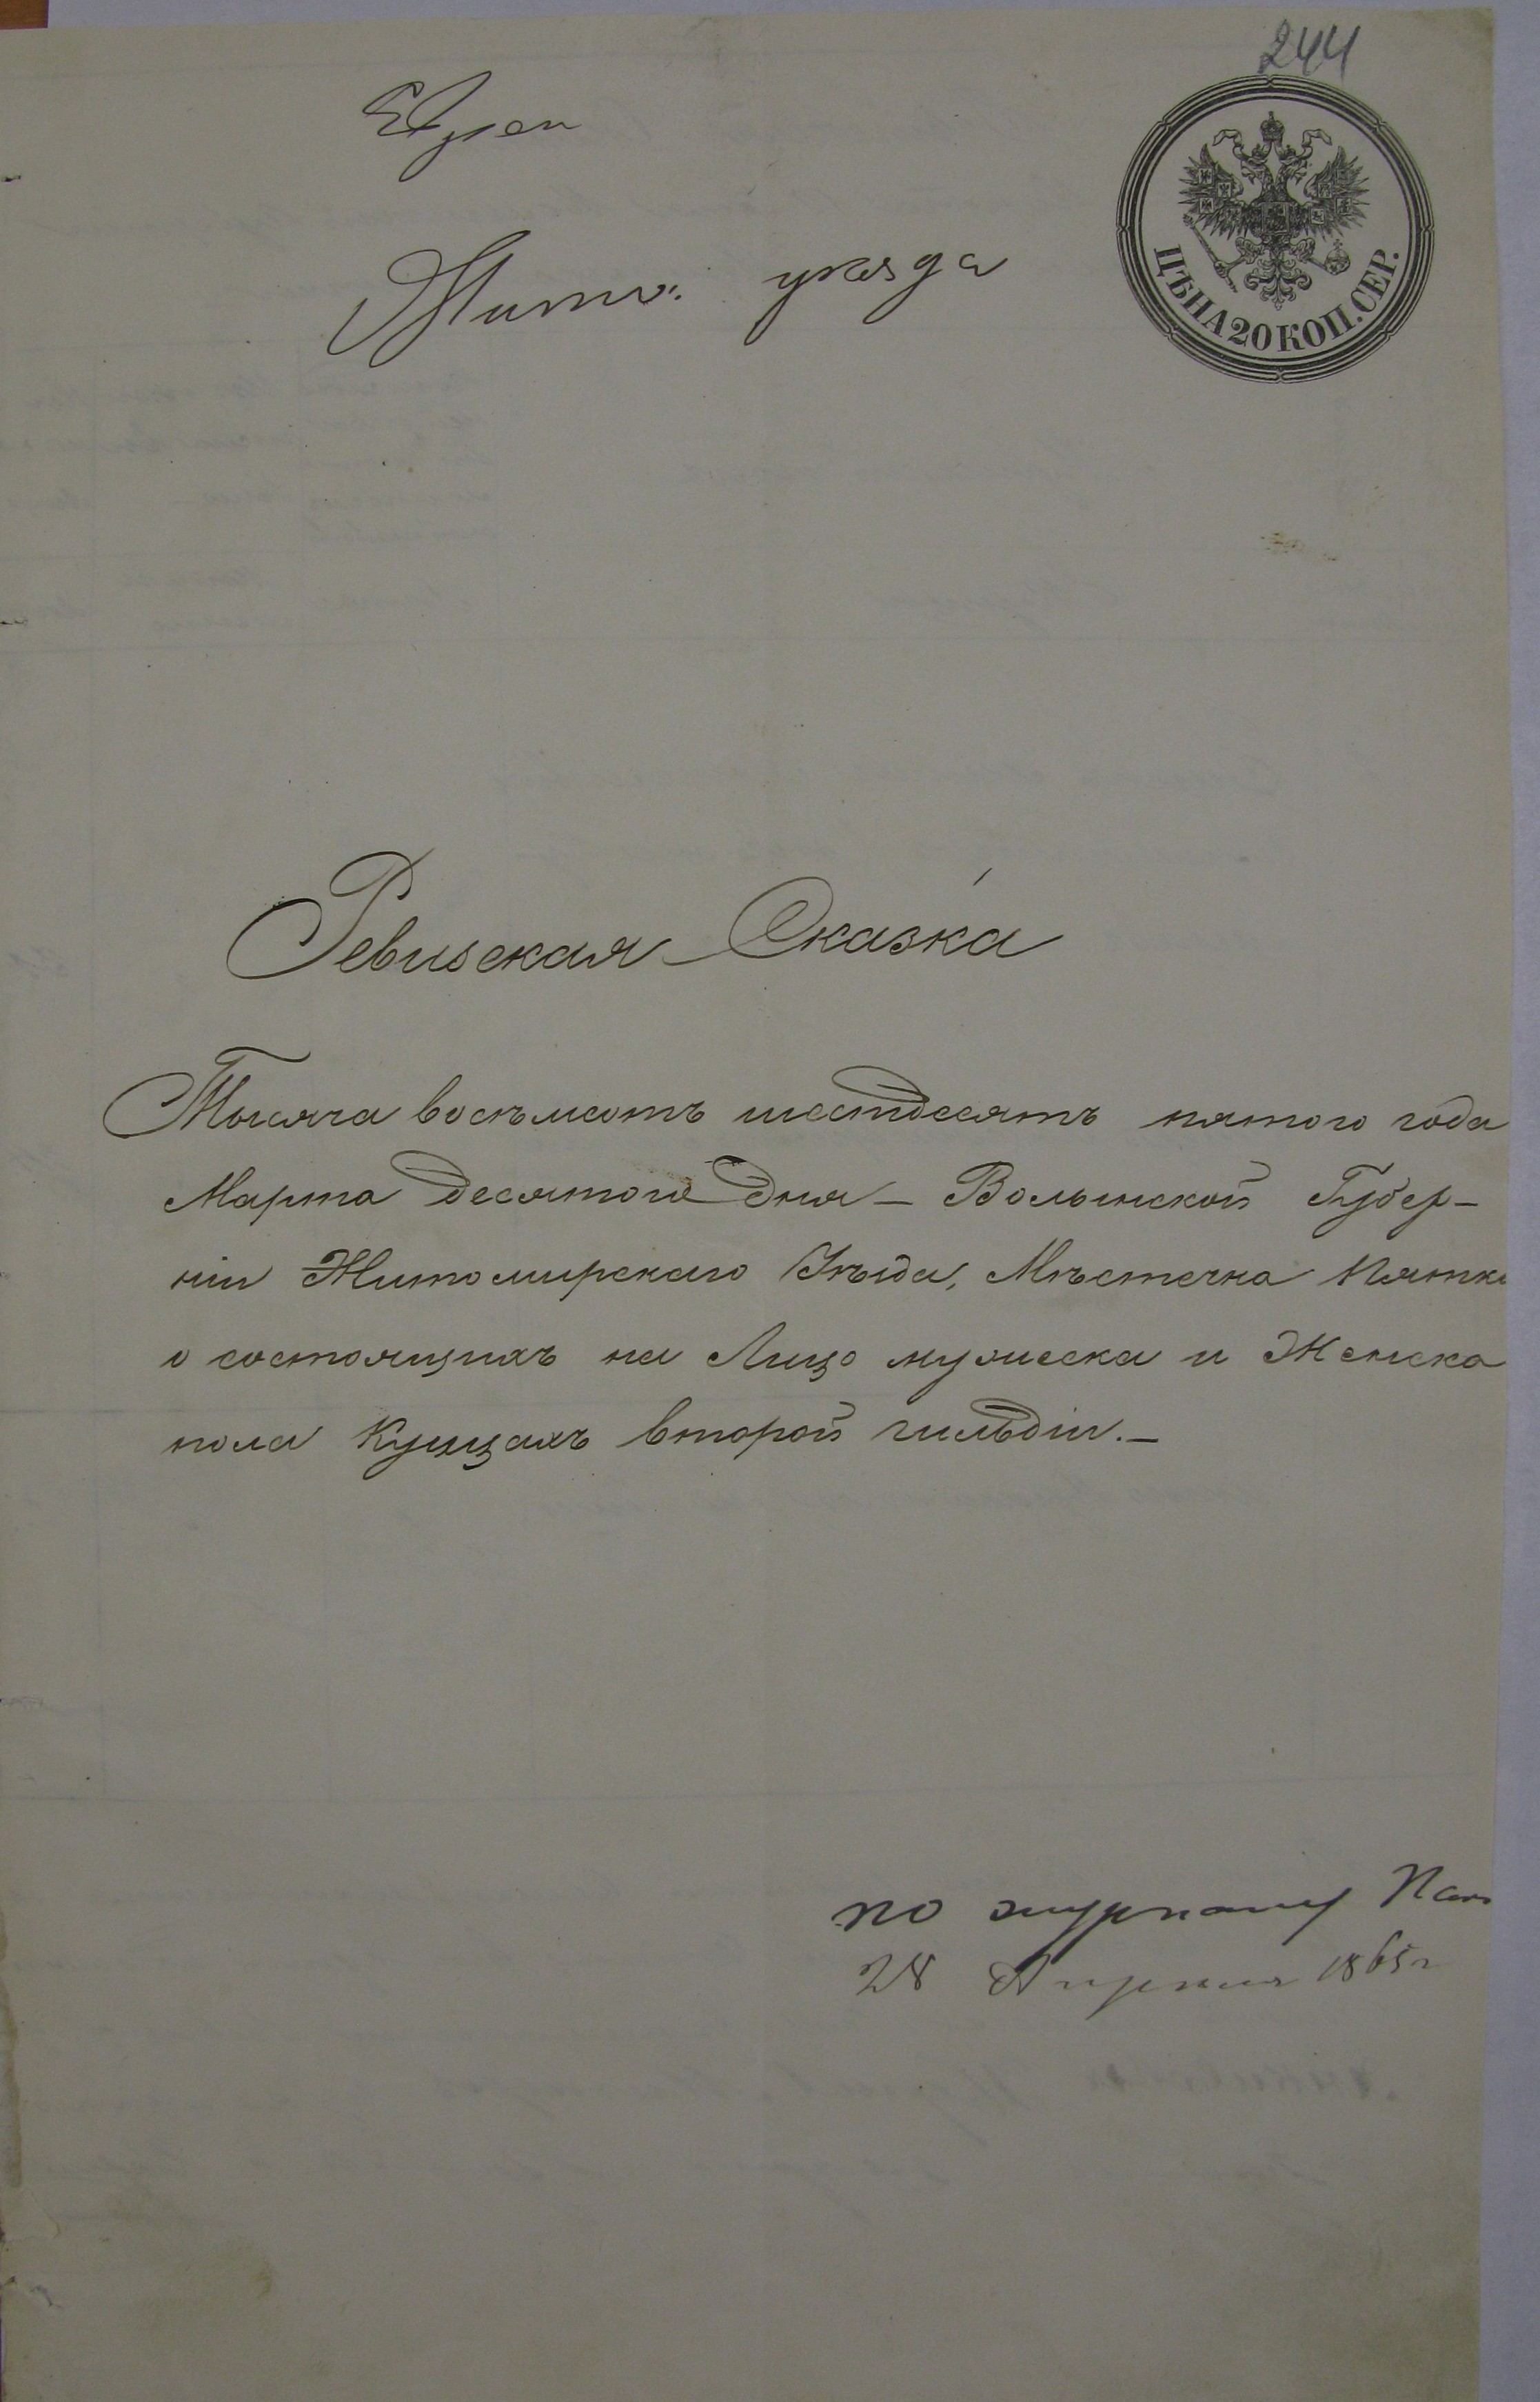 244
ЦѢНА 20 КОП. СЕР.
Жито: уезда
Ревизская Сказка
Тысяча восъмсотъ шестдесятъ пятого года
Марта десятого дня – Волынской Губер-
ніи Житомирскаго Уѣзда, Мѣстечка Пятки
о состоящихъ на Лицо мужеска и Женска
пола Купцахъ второй гильдіи. –
по журналу Пал
28 Апреля 1865 г